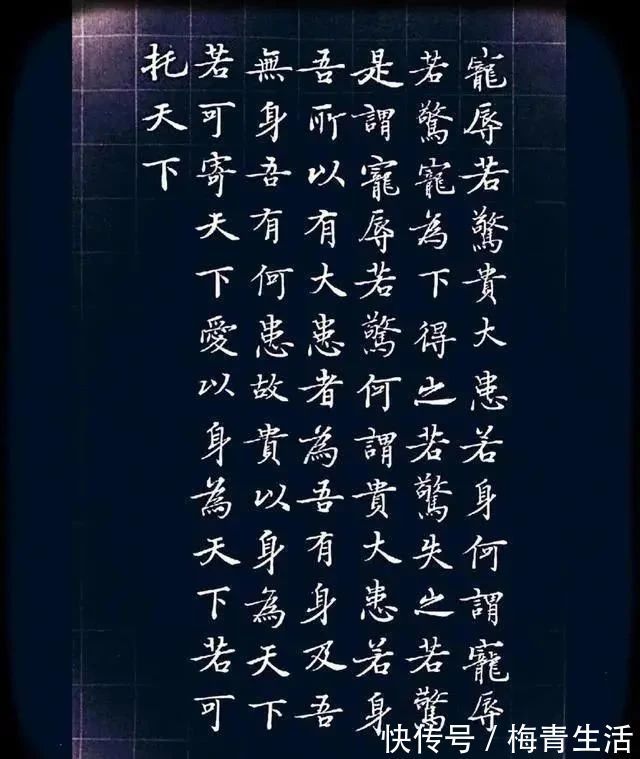 寵辱若驚貴大患若身何謂寵辱
若驚寵為下得之若驚失之若驚
是謂寵辱若驚何謂貴大患若身
吾所以有大患者為吾有身及吾
無身吾有何患故貴以身為天下
若可寄天下愛以身為天下若可
托天下
快传号/梅青生活